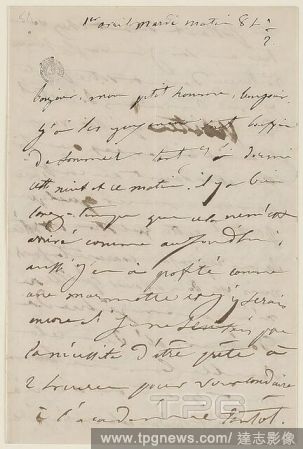 1er avril mardi matin 8h ½
Bonjour, mon petit homme, bonjour.
J'ai les yeux
de sommeil tant j'ai dormi
cette nuit et ce matin. il y a bien
longtemps que cela ne m'était
arrivé comme aujourd'hui,
aussi j'en ai profité comme
une marmotte et j'y serais
encore si je ne sentais pas
la nécessité d'être prête à
2 heures pour vous conduire
à l'académie tantôt.
TPG
www.tpgnews.com/達志影像